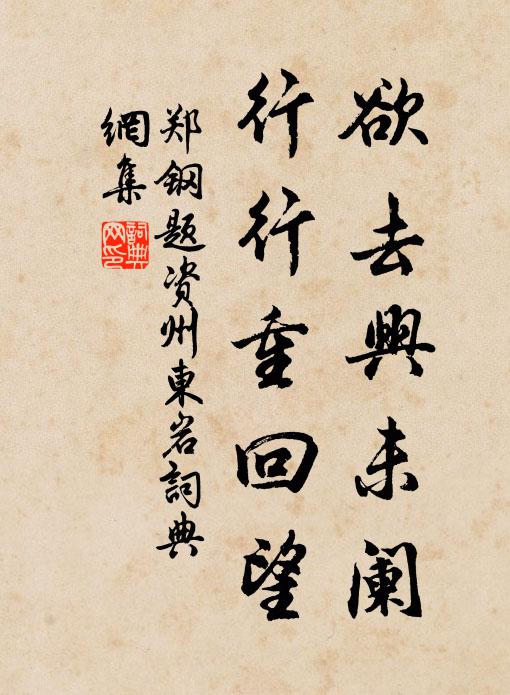 欲去興未阑
行行重回望
郑钢题资州東岩詞典
網集
詞典
网印